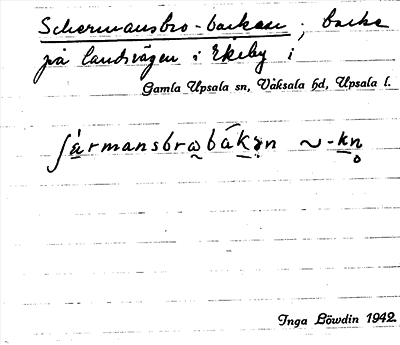 Schermansbro-backen; backe
på landsvägen i Ekeby i
Gamla Upsala sn, Våksala hd, Upsala l.
ʃä̀rmansbrωbák̠ən ~ -kn̥
Inga Löwdin 1942.